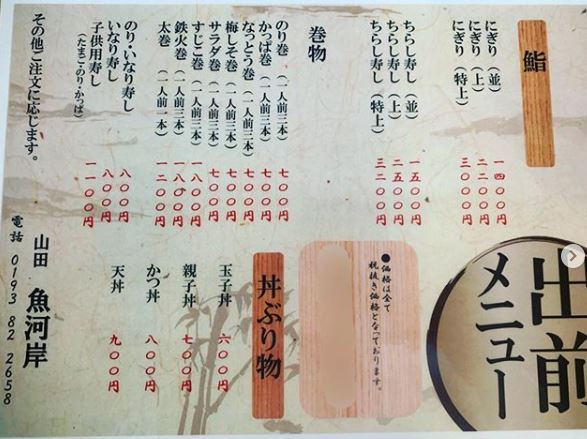 出前
メニュー
鮨
にぎり（並）　一四〇〇円
にぎり（上）　二二〇〇円
にぎり（特上）　三〇〇〇円
ちらし寿し（並）　一五〇〇円
ちらし寿し（上）　二五〇〇円
ちらし寿し（特上）　三二〇〇円
巻物
のり巻（一人前三本）　七〇〇円
かっぱ巻（一人前三本）　七〇〇円
なっとう巻（一人前三本）　七〇〇円
梅しそ巻（一人前三本）　七〇〇円
サラダ巻（一人前三本）　七〇〇円
すじこ巻（一人前三本）　一八〇〇円
鉄火巻（一人前三本）　一八〇〇円
太巻（一人前一本）　一二〇〇円
のり・いなり寿し　八〇〇円
いなり寿し　八〇〇円
子供用寿し　一一〇〇円
（たまご・のり・かっぱ）
その他ご注文に応じます。
●価格は全て
税抜き価格となっております。
丼ぶり物
玉子丼　六〇〇円
親子丼　七〇〇円
かつ丼　八〇〇円
天丼　九〇〇円
山田　魚河岸
電話　0193 82 2658